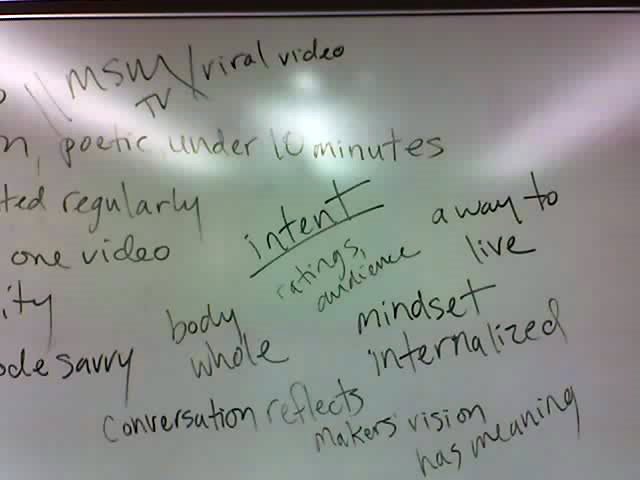 MSM / viral video
TV
poetic, under 10 minutes
regularly
one video
intent
ratings,
audience
a way to
live
body
whole
mindset
internalized
savvy
Conversation reflects
makers' vision
has meaning